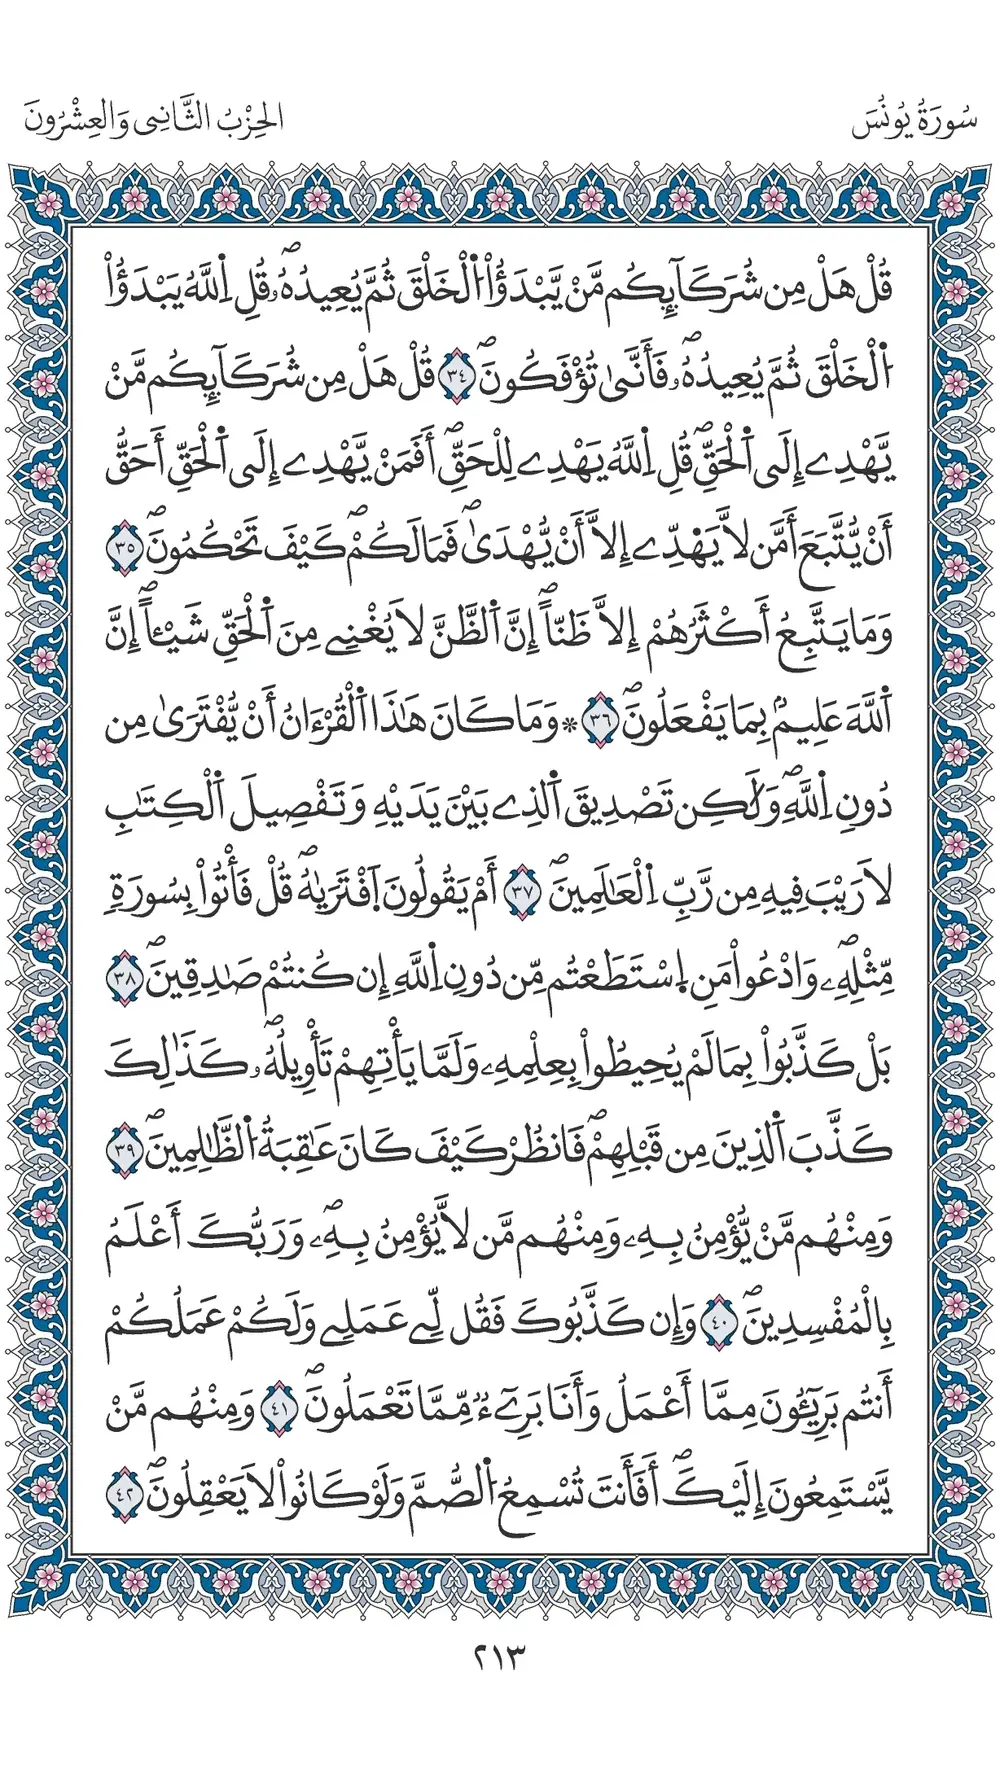 سُورَةُ يُونُسَ
الحِزْبُ الثَّانِي وَالعِشْرُونَ
قُلْ هَلْ مِن شُرَكَآئِكُم مَّنْ يَّبْدَؤُاْ اُ۬لْخَلْقَ ثُمَّ يُعِيدُهُۥۖ قُلِ اِ۬للَّهُ يَبْدَؤُاْ
اُ۬لْخَلْقَ ثُمَّ يُعِيدُهُۥۖ فَأَنَّىٰ تُؤْفَكُونَۖ ٣٤ قُلْ هَلْ مِن شُرَكَآئِكُم مَّنْ
يَّهْدِے إِلَى اَ۬لْحَقِّۖ قُلِ اِ۬للَّهُ يَهْدِے لِلْحَقِّۖ أَفَمَنْ يَّهْدِے إِلَى اَ۬لْحَقِّ أَحَقُّ
أَنْ يُّتَّبَعَ أَمَّن لَّا يَهَدِّے إِلَّا أَنْ يُّهْدَىٰۖ فَمَا لَكُمْۖ كَيْفَ تَحْكُمُونَۖ ٣٥
وَمَا يَتَّبِعُ أَكْثَرُهُمْ إِلَّا ظَنّاًۖ إِنَّ اَ۬لظَّنَّ لَا يُغْنِے مِنَ اَ۬لْحَقِّ شَيْـٔاًۖ إِنَّ
اَ۬للَّهَ عَلِيمُۢ بِمَا يَفْعَلُونَۖ ٣٦ ۞ وَمَا كَانَ هَٰذَا اَ۬لْقُرْءَانُ أَنْ يُّفْتَرَىٰ مِن
دُونِ اِ۬للَّهِۖ وَلَٰكِن تَصْدِيقَ اَ۬لذِے بَيْنَ يَدَيْهِ وَتَفْصِيلَ اَ۬لْكِتَٰبِ
لَا رَيْبَ فِيهِ مِن رَّبِّ اِ۬لْعَٰلَمِينَۖ ٣٧ أَمْ يَقُولُونَ اَ۪فْتَرَىٰهُۖ قُلْ فَأْتُواْ بِسُورَةٍ
مِّثْلِهِۦۖ وَادْعُواْ مَنِ اِ۪سْتَطَعْتُم مِّن دُونِ اِ۬للَّهِ إِن كُنتُمْ صَٰدِقِينَۖ ٣٨
بَلْ كَذَّبُواْ بِمَا لَمْ يُحِيطُواْ بِعِلْمِهِۦ وَلَمَّا يَأْتِهِمْ تَأْوِيلُهُۥۖ كَذَٰلِكَ
كَذَّبَ اَ۬لذِينَ مِن قَبْلِهِمْۖ فَانظُرْ كَيْفَ كَانَ عَٰقِبَةُ اُ۬لظَّٰلِمِينَۖ ٣٩
وَمِنْهُم مَّنْ يُّؤْمِنُ بِهِۦ وَمِنْهُم مَّن لَّا يُؤْمِنُ بِهِۦۖ وَرَبُّكَ أَعْلَمُ
بِالْمُفْسِدِينَۖ ٤٠ وَإِن كَذَّبُوكَ فَقُل لِّے عَمَلِے وَلَكُمْ عَمَلُكُمْ
أَنتُم بَرِيٓـُٔونَ مِمَّا أَعْمَلُ وَأَنَا بَرِےٓءٌ مِّمَّا تَعْمَلُونَۖ ٤١ وَمِنْهُم مَّنْ
يَّسْتَمِعُونَ إِلَيْكَۖ أَفَأَنتَ تُسْمِعُ اُ۬لصُّمَّ وَلَوْ كَانُواْ لَا يَعْقِلُونَۖ ٤٢
٢١٣